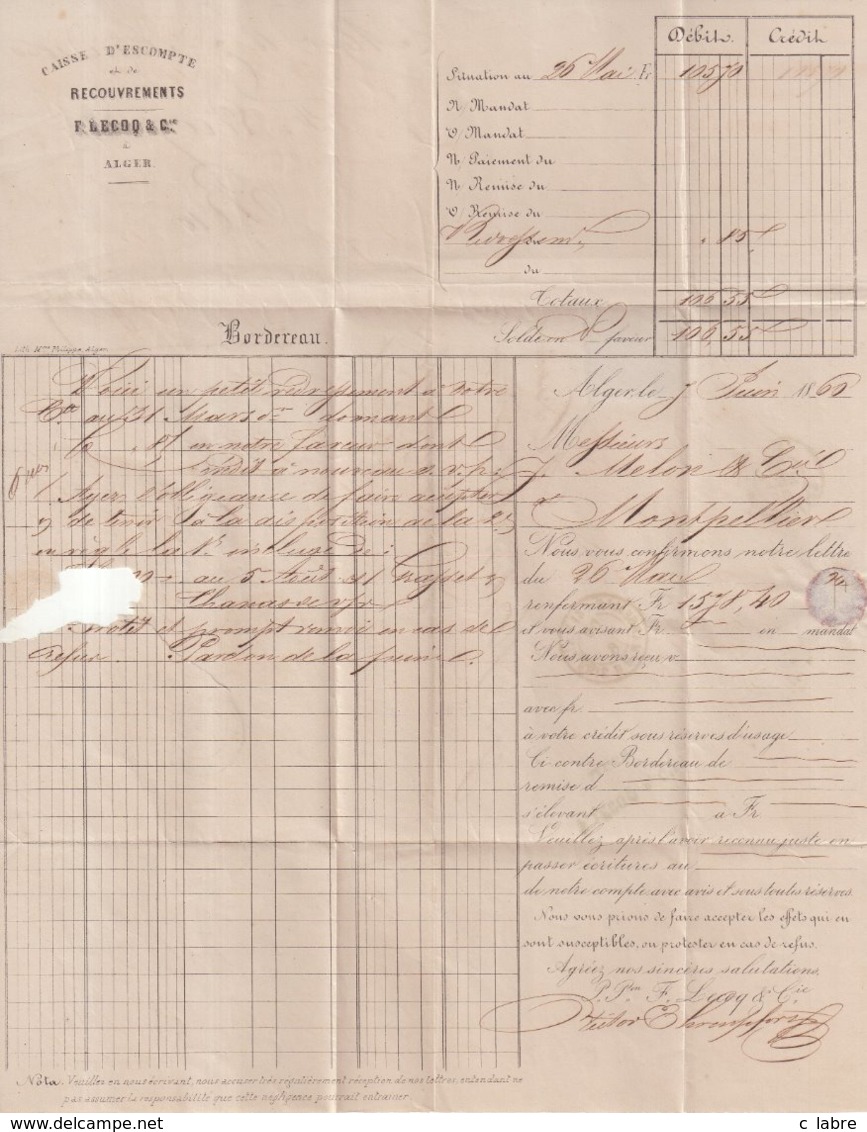 CAISSE D'ESCOMPTE
et de
RECOUVREMENTS
F. LECOQ & Cie
à
ALGER.
Débit. Crédit
Situation au 26 Mai Fr 105 70
N/ Mandat
V/ Mandat
N/ Paiement du
N/ Remise du
V/ Remise du
Redressemt " 85
du
Totaux 106 55
Solde en V faveur 106,55
Bordereau.
Lith. Mme Philippe, Alger.
Voici un petit redressement à votre
Cte au 31 Mars dr donnant
en notre faveur dont
crédit à nouveau s.v.p.
Ayez l'obligeance de faire accepter
& de tenir à la disposition de la 2e
en règle la 1e incluse de:
au 5 Août s/ Grasset &
Chavasse v/pr
Protêt et prompt renvoi en cas de
refus. Pardon de la peine.
Alger, le 7 Juin 186
Messieurs
Melon & Cie
Montpellier
Nous vous confirmons notre lettre
du 26 Mai
renfermant Fr 1578,40
et vous avisant Fr. en mandat
Nous avons reçu v
avec fr.
à votre crédit sous réserves d'usage
Ci contre Bordereau de
remise d
s'élevant à Fr.
Veuillez après l'avoir reconnu juste en
passer écritures au
de notre compte avec avis et sous toutes réserves.
Nous vous prions de faire accepter les effets qui en
sont susceptibles, ou protester en cas de refus.
Agréez nos sincères salutations.
P. Pon F. Lecoq & Cie
Nota. Veuillez en nous écrivant, nous accuser très régulièrement réception de nos lettres, entendant ne
pas assumer la responsabilité que cette négligence pourrait entraîner.
c labre